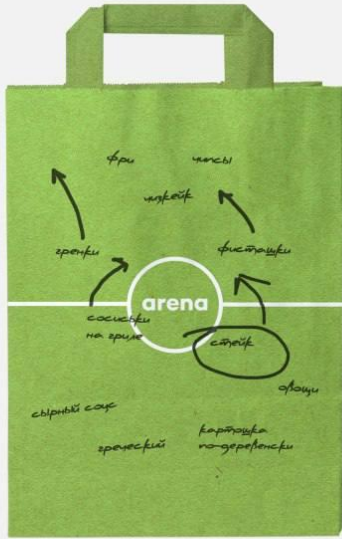 фри чипсы
чизкейк
гренки фисташки
arena
сосиськи
на гриле
стейк
овощи
сырный соус
греческий
картошка
по-деревенски